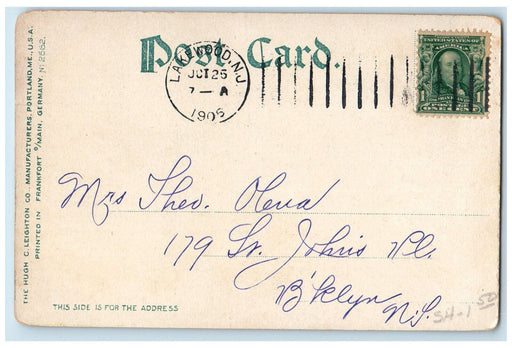 Post Card.
LAKEWOOD, N.J.
OCT 25
7 — A
1905
UNITED STATES OF
AMERICA
1 1
THE HUGH C. LEIGHTON CO. MANUFACTURERS, PORTLAND, ME., U.S.A.
PRINTED IN FRANKFORT o/MAIN, GERMANY. No 2552.
Mrs Theo.
179 St. Johns Pl.
B'klyn
N.Y.
THIS SIDE IS FOR THE ADDRESS